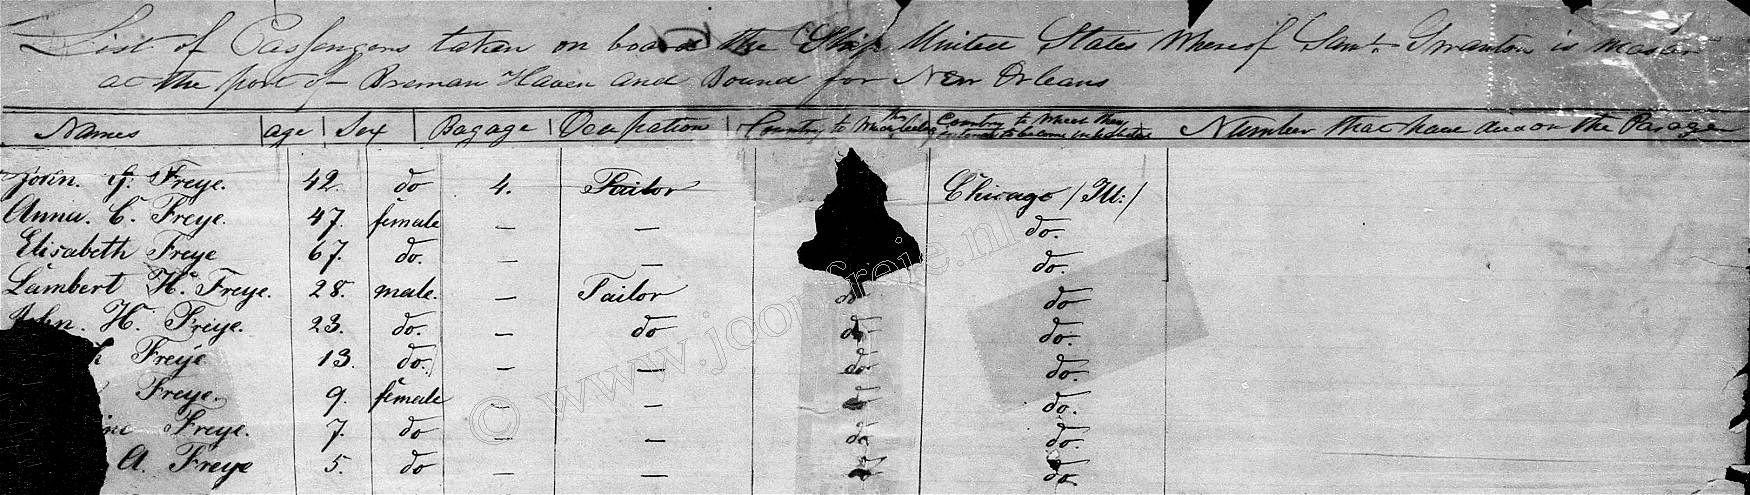 List of Passengers taken on board the Ship United States Whereof Saml. Swanton is master
at the port of Breman Haven and Bound for New Orleans
Names age Sex Bagage Occupation Country to Which they belong Country to Which they intend to become inhabitants Number that have died on the Passage
John. G. Freye. 42 do 4. Tailor Chicago /Ill:/
Anna. C. Freye. 47. female — — do.
Elisabeth Freye 67. do. — — do.
Lambert H. Freye. 28. male. — Tailor do do
John. H. Freye. 23. do. — do do do.
Freye 13. do. — — do do.
Freye. 9. female — — do do.
Freye. 7. do — — do do.
A. Freye 5. do — — do do.
© www.joopfreije.nl